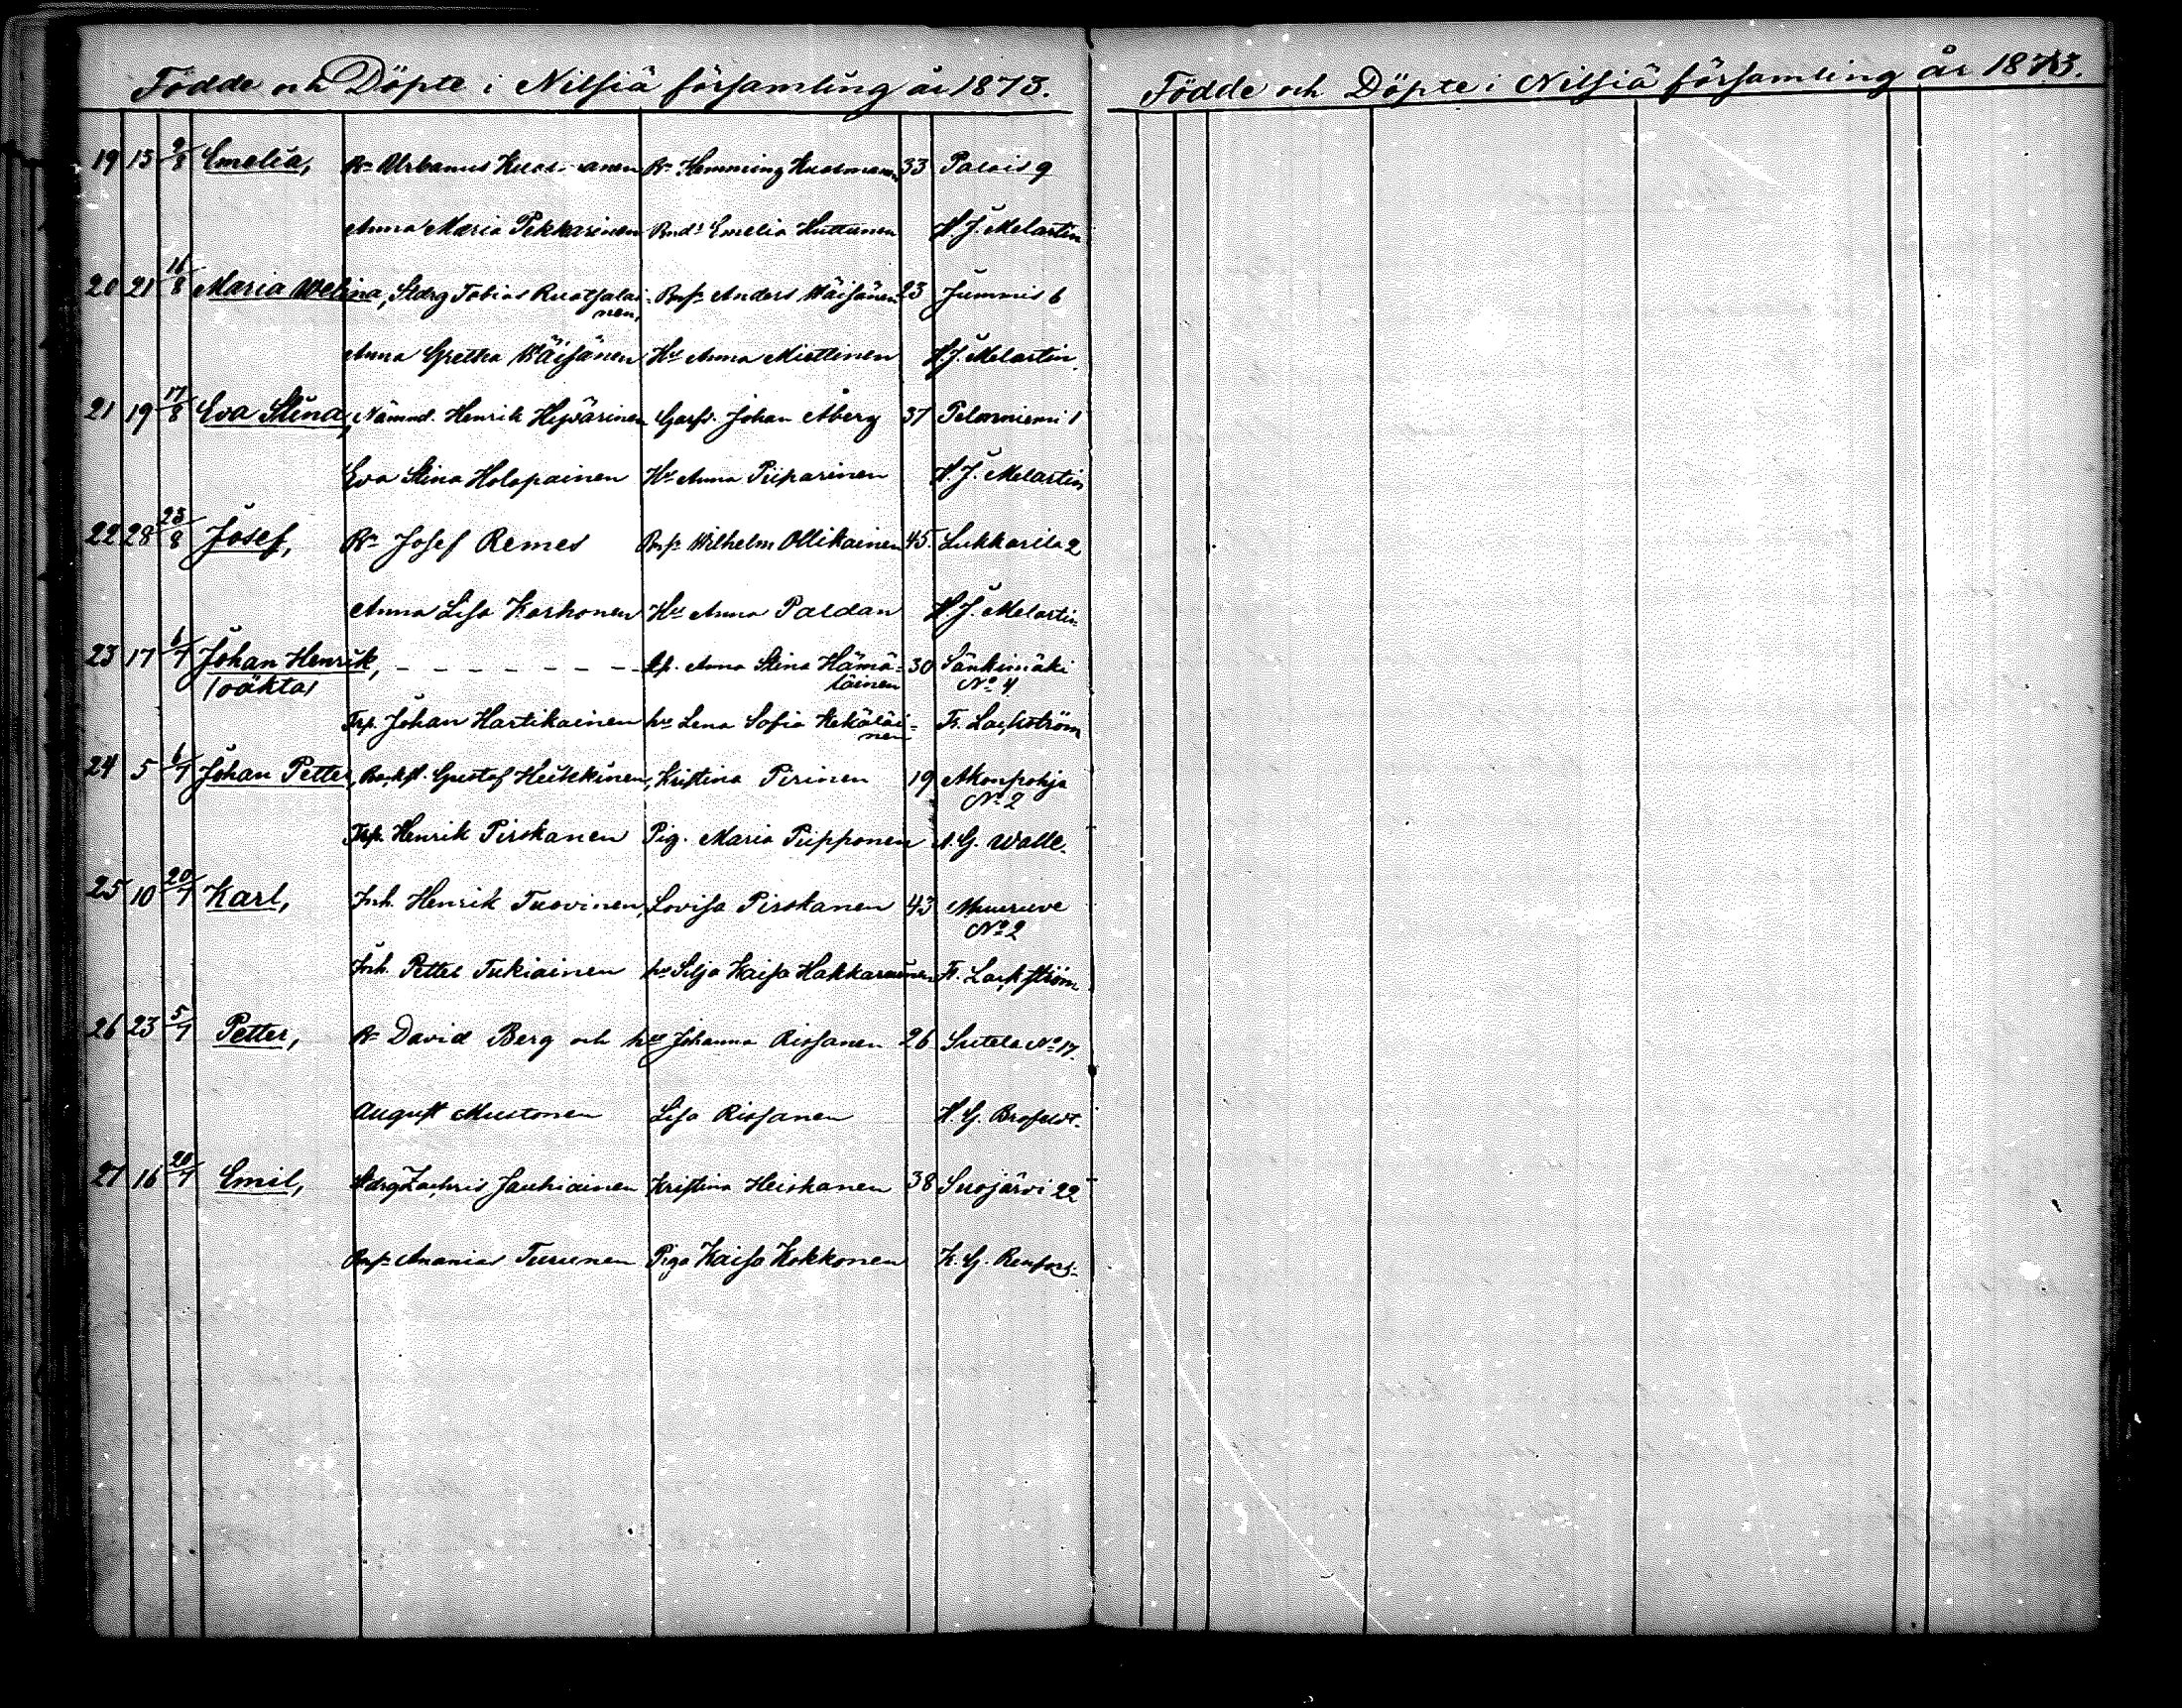 Födde och Döpte i Nilsiä församling år 1873.
19 13 9/8 Emelia, Bn Urbanus Kuosmanen Bn Hemming Kuosmanen 33 Palois 9
Anna Maria Pekkarinen Bnd Emelia Huttunen H. J. Melartin
20 21 16/8 Maria Welina, Sldrg Tobias Ruotsalai- Bnss Anders Wäisänen 23 Jummis 6
nen,
Anna Gretha Wäisänen Hu Anna Miettinen H. J. Melartin.
21 19 17/8 Eva Stina, Nämnd. Henrik Hyvärinen Garfv. Johan Åberg 37 Pelonniemi 1
Eva Stina Holopainen Hu Anna Piiparinen H. J. Melartin
22 28 23/8 Josef, Bn Josef Remes Bnss Wilhelm Ollikainen 45. Lukkarila 2
Anna Lisa Korhonen Hu Anna Paldan H. J. Melartin
23 17 6/7 Johan Henrik, - - - - - - - - Anna Stina Hämä- 30 Sänkimäki
(oäkta) läinen No 4
Trp. Johan Hartikainen hu Lena Sofia Kekäläi- Fr. Lackström
nen
24 5 6/7 Johan Petter, Backst. Gustaf Heikkinen, Kristina Pirinen 19 Akonpohja
No 2
Trp. Henrik Pirskanen Pig. Maria Piipponen A. G. Walle.
25 10 20/7 Karl, Inh. Henrik Tuovinen, Lovisa Pirskanen 43 Muuruve
No 2
Inh. Petter Tukiainen hu Silja Kaisa Hakkarainen Fr. Lackström
26 23 5/7 Petter, Bn David Berg och hu Johanna Rissanen 26 Sutela No 17.
August Mustonen Lisa Rissanen H. G. Brofeldt.
27 16 20/7 Emil, Sldrg Zachris Jauhiainen Kristina Heiskanen 38 Suojärvi 22
Bnss Ananias Turunen Piga Kaisa Kokkonen K. G. Renfors
Födde och Döpte i Nilsiä församling år 1873.